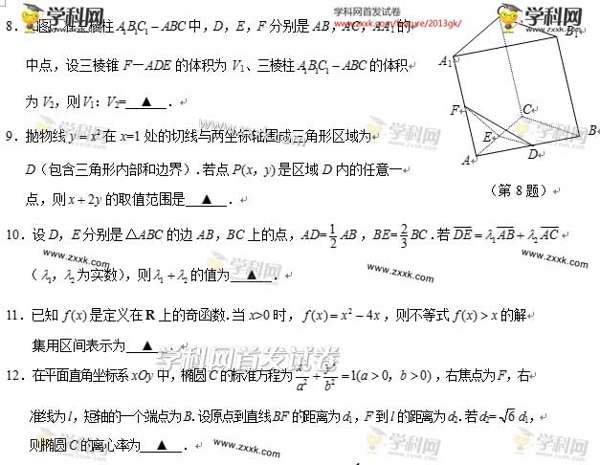 学科网首发试卷
www.zxxk.com/feature/2013gk/
8. 三棱柱A₁B₁C₁－ABC中，D，E，F 分别是 AB，AC，AA₁的
中点，设三棱锥 F—ADE 的体积为 V₁、三棱柱A₁B₁C₁－ABC的体积
为 V₂，则V₁: V₂= ▲ .
9. 抛物线 y = x² 在 x=1 处的切线与两坐标轴围成三角形区域为
D（包含三角形内部和边界）. 若点 P(x，y)是区域 D 内的任意一
点，则 x + 2y 的取值范围是 ▲ .
A₁
B₁
F
C
E
B
A
D
（第 8 题）
10. 设 D，E分别是△ABC 的边 AB，BC 上的点，AD=1/2 AB ，BE=2/3 BC . 若 DE = λ₁AB + λ₂AC
（λ₁，λ₂ 为实数），则 λ₁ + λ₂ 的值为 ▲ .
11. 已知 f(x) 是定义在 R 上的奇函数. 当 x>0 时， f(x) = x² − 4x ，则不等式 f(x) > x 的解
集用区间表示为 ▲
学科网首发试卷
12. 在平面直角坐标系 xOy 中，椭圆 C 的标准方程为 x²/a² + y²/b² = 1(a > 0，b > 0) ，右焦点为F，右
准线为 l，短轴的一个端点为 B. 设原点到直线 BF 的距离为 d₁，F 到 l 的距离为 d₂. 若 d₂= √6 d₁，
则椭圆 C 的离心率为 ▲ .
www.zxxk.com
学科网